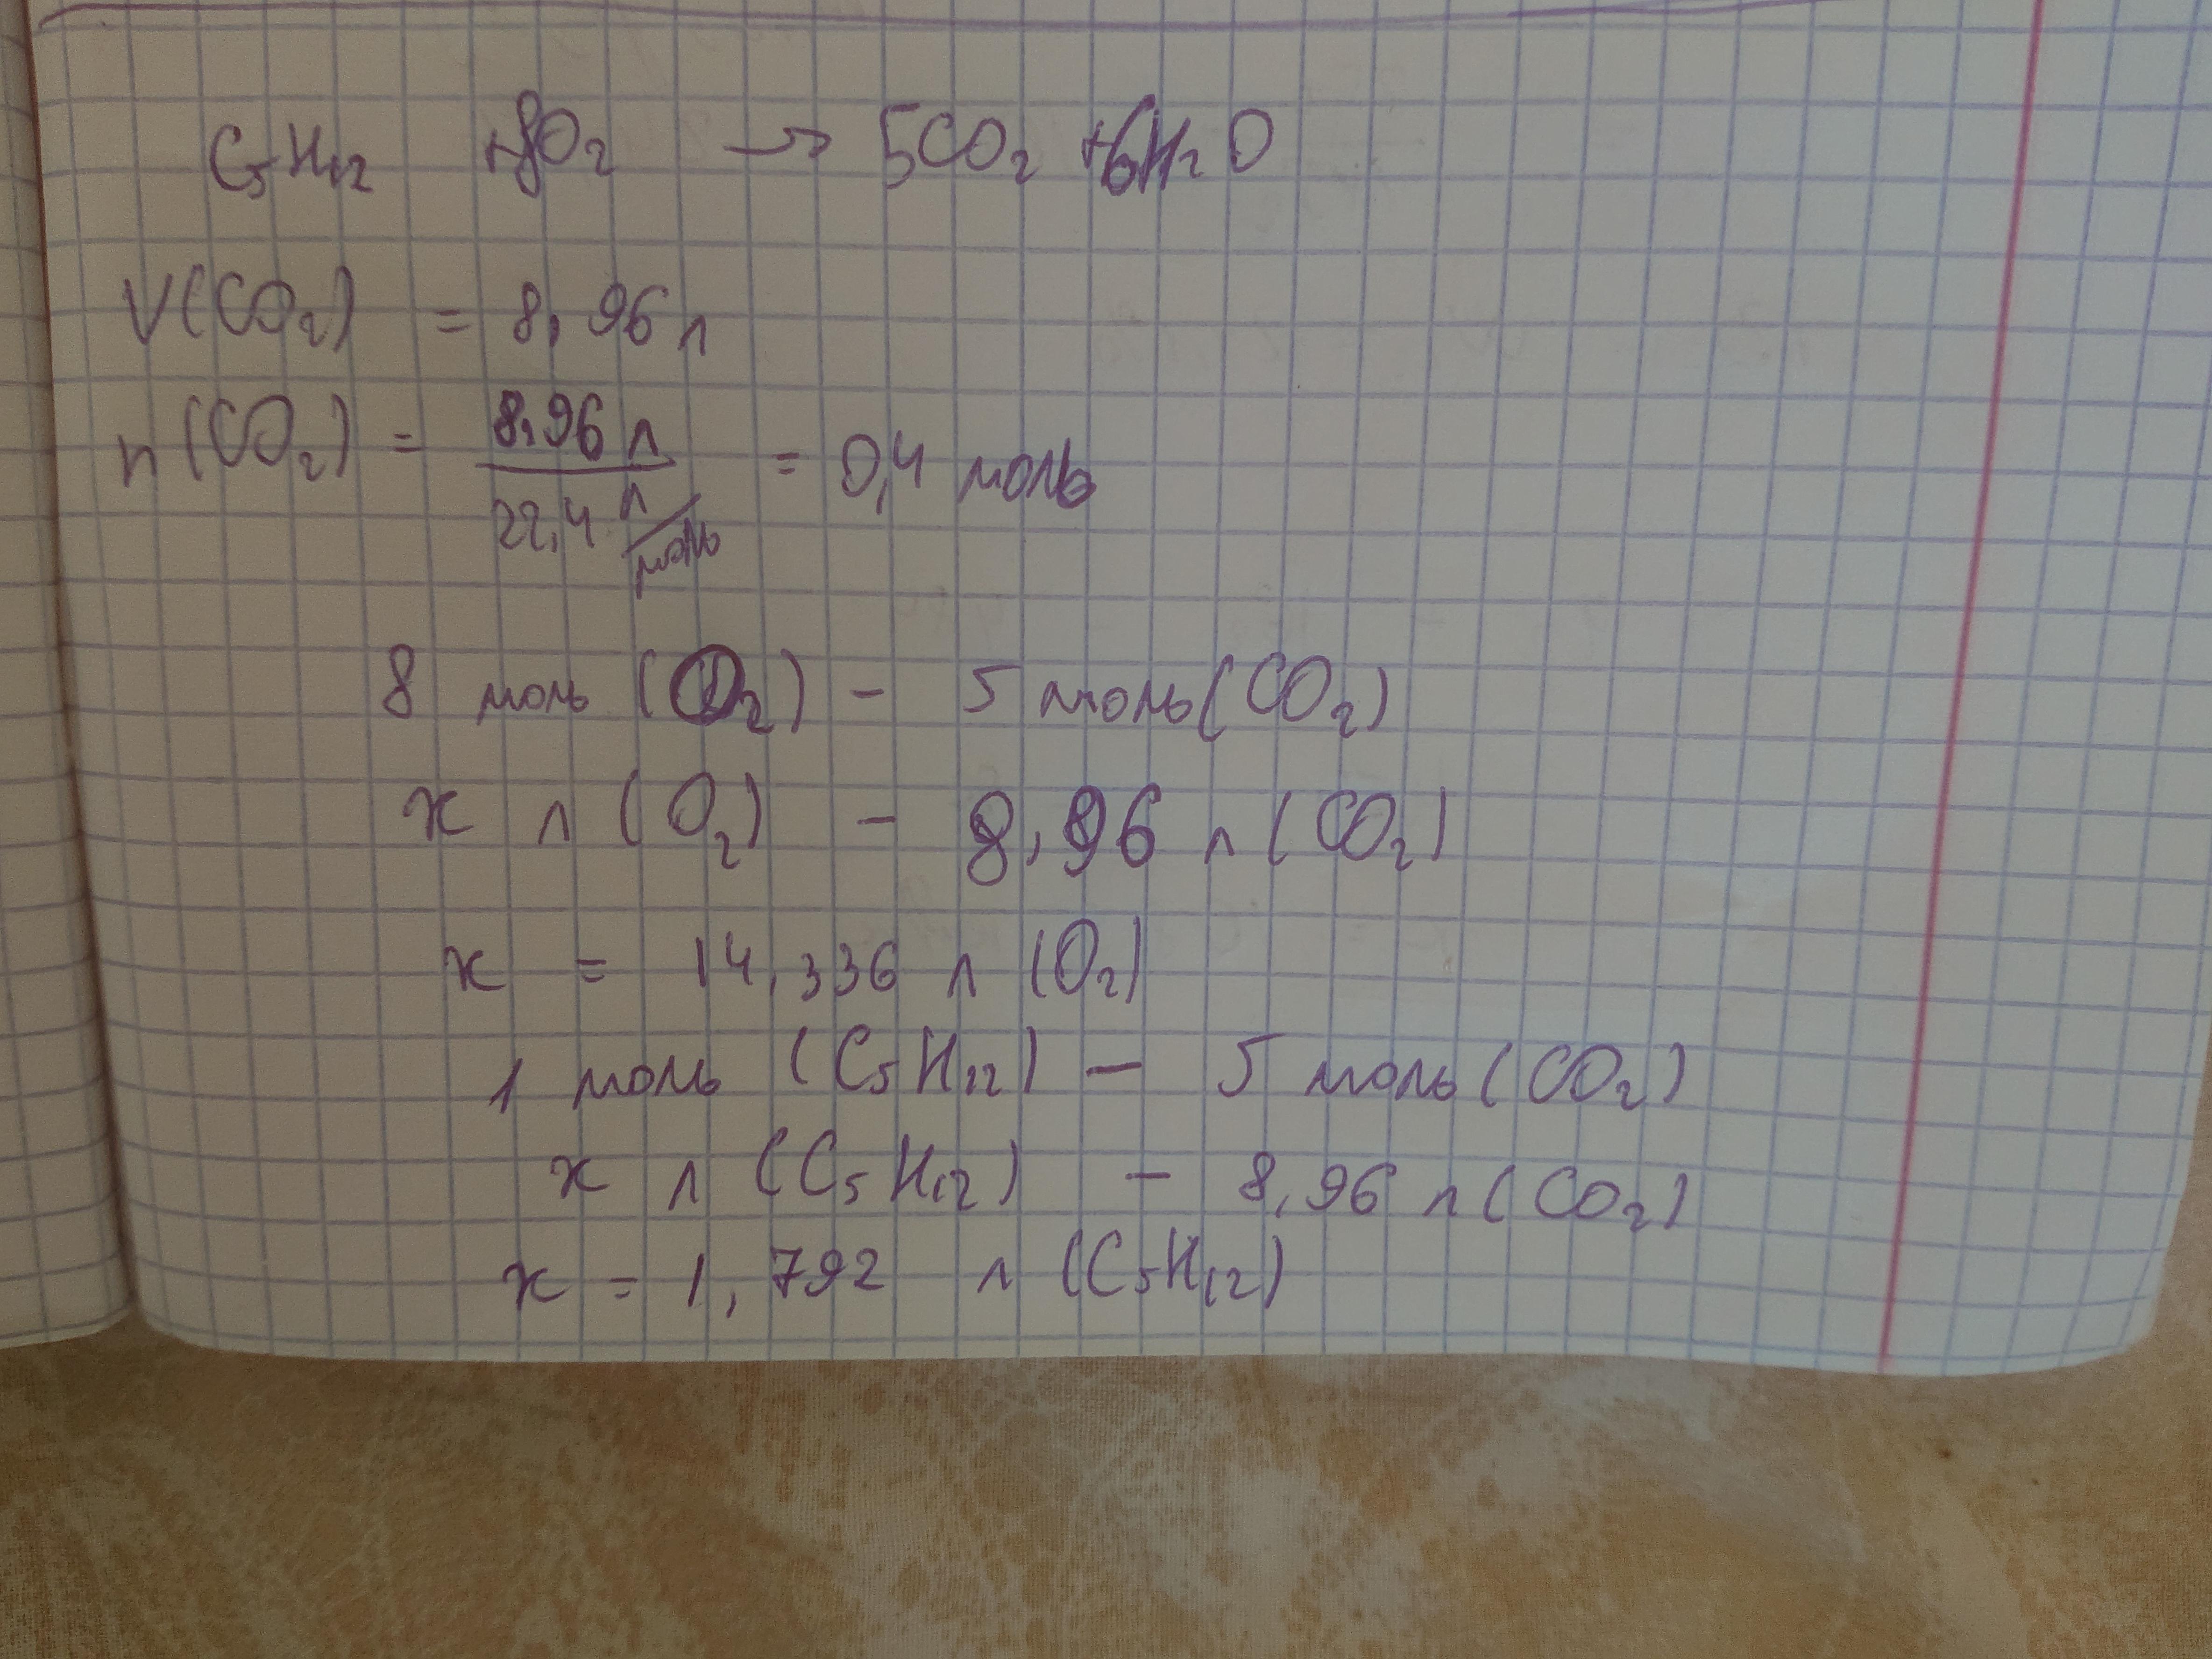 C₅H₁₂ + 8O₂ → 5CO₂ + 6H₂O
V(CO₂) = 8,96 л
n(CO₂) = 8,96 л / 22,4 л/моль = 0,4 моль
8 моль (O₂) - 5 моль (CO₂)
x л (O₂) - 8,96 л (CO₂)
x = 14,336 л (O₂)
1 моль (C₅H₁₂) - 5 моль (CO₂)
x л (C₅H₁₂) - 8,96 л (CO₂)
x = 1,792 л (C₅H₁₂)